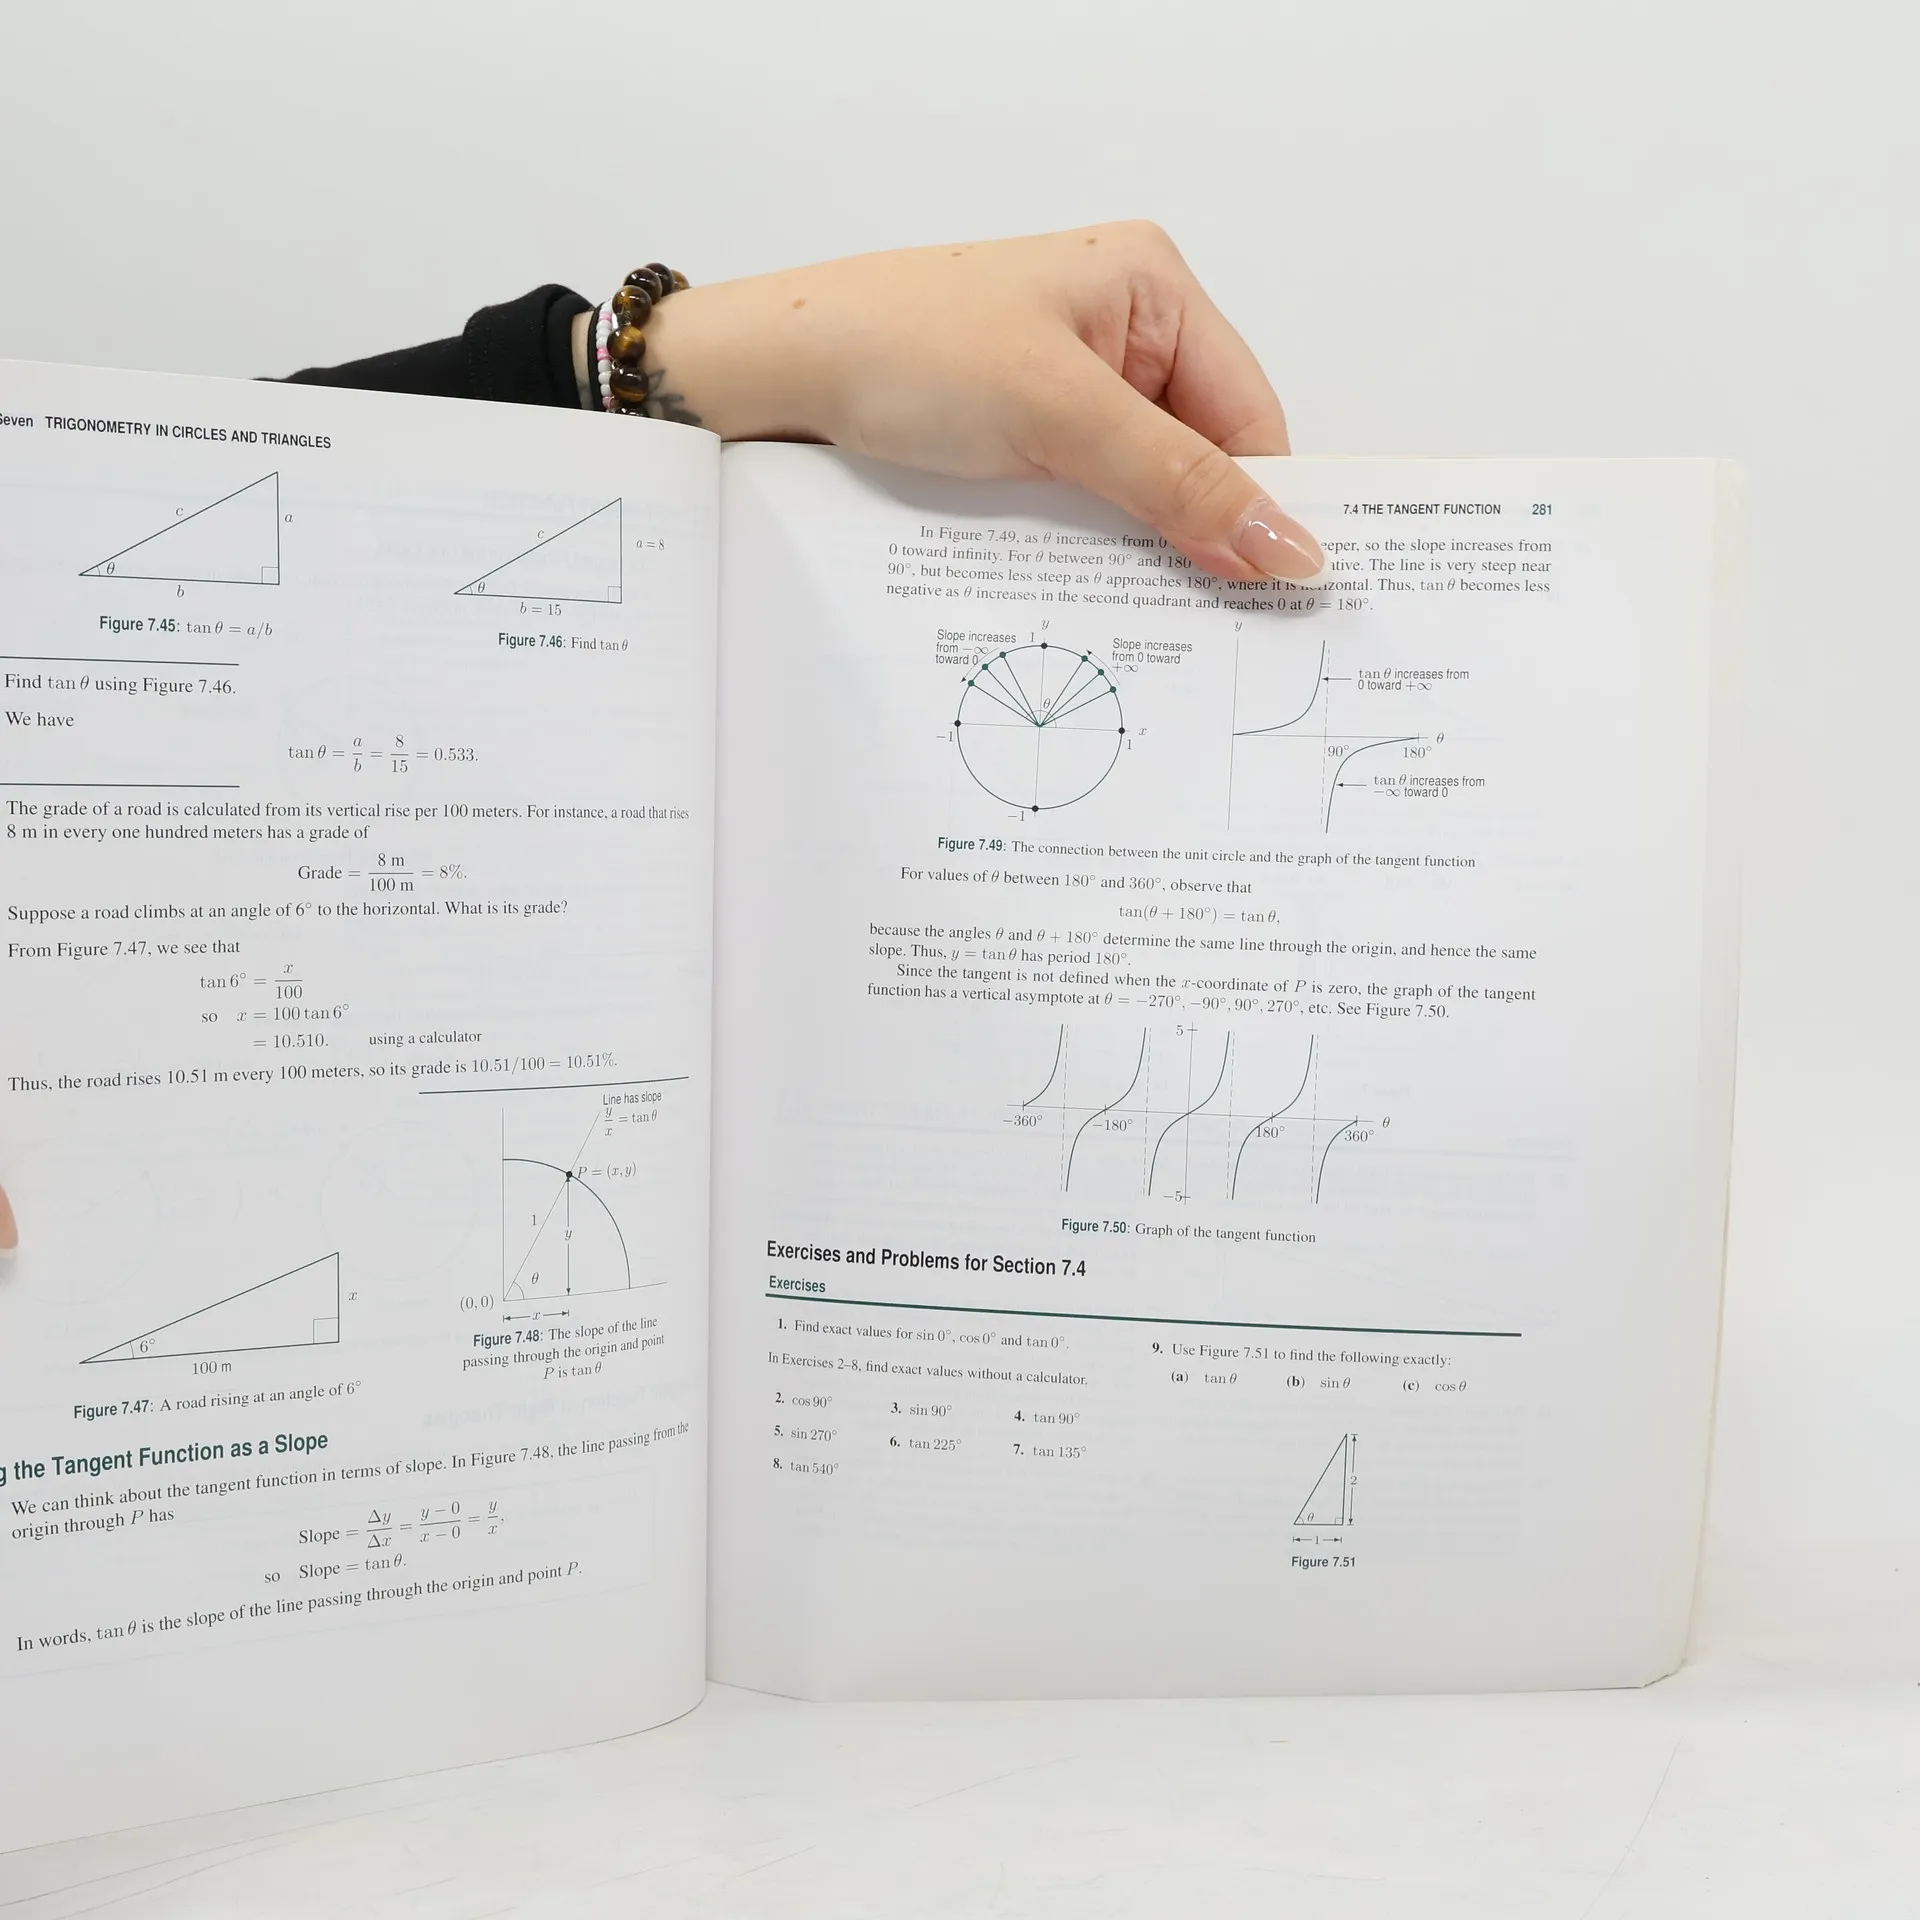 Seven TRIGONOMETRY IN CIRCLES AND TRIANGLES
c
a
θ
b
Figure 7.45: tan θ = a/b
c
a = 8
θ
b = 15
Figure 7.46: Find tan θ
Find tan θ using Figure 7.46.
We have
tan θ = a/b = 8/15 = 0.533.
The grade of a road is calculated from its vertical rise per 100 meters. For instance, a road that rises
8 m in every one hundred meters has a grade of
Grade = 8 m/100 m = 8%.
Suppose a road climbs at an angle of 6° to the horizontal. What is its grade?
From Figure 7.47, we see that
tan 6° = x/100
so x = 100 tan 6°
= 10.510. using a calculator
Thus, the road rises 10.51 m every 100 meters, so its grade is 10.51/100 = 10.51%.
x
6°
100 m
Figure 7.47: A road rising at an angle of 6°
Line has slope
y/x = tan θ
P = (x, y)
1
y
θ
(0, 0)
x
Figure 7.48: The slope of the line
passing through the origin and point
P is tan θ
the Tangent Function as a Slope
We can think about the tangent function in terms of slope. In Figure 7.48, the line passing from the
origin through P has
Slope = Δy/Δx = y − 0/x − 0 = y/x,
so Slope = tan θ.
In words, tan θ is the slope of the line passing through the origin and point P.
7.4 THE TANGENT FUNCTION 281
In Figure 7.49, as θ increases from 0 eeper, so the slope increases from
0 toward infinity. For θ between 90° and 180 ative. The line is very steep near
90°, but becomes less steep as θ approaches 180°, where it is horizontal. Thus, tan θ becomes less
negative as θ increases in the second quadrant and reaches 0 at θ = 180°.
y
1
Slope increases
from −∞
toward 0
Slope increases
from 0 toward
+∞
θ
−1
1
x
−1
y
tan θ increases from
0 toward +∞
θ
90°
180°
tan θ increases from
−∞ toward 0
Figure 7.49: The connection between the unit circle and the graph of the tangent function
For values of θ between 180° and 360°, observe that
tan(θ + 180°) = tan θ,
because the angles θ and θ + 180° determine the same line through the origin, and hence the same
slope. Thus, y = tan θ has period 180°.
Since the tangent is not defined when the x-coordinate of P is zero, the graph of the tangent
function has a vertical asymptote at θ = −270°, −90°, 90°, 270°, etc. See Figure 7.50.
5
−360°
−180°
180°
360°
θ
−5
Figure 7.50: Graph of the tangent function
Exercises and Problems for Section 7.4
Exercises
1. Find exact values for sin 0°, cos 0° and tan 0°.
In Exercises 2–8, find exact values without a calculator.
2. cos 90°
3. sin 90°
4. tan 90°
5. sin 270°
6. tan 225°
7. tan 135°
8. tan 540°
9. Use Figure 7.51 to find the following exactly:
(a) tan θ (b) sin θ (c) cos θ
2
θ
1
Figure 7.51